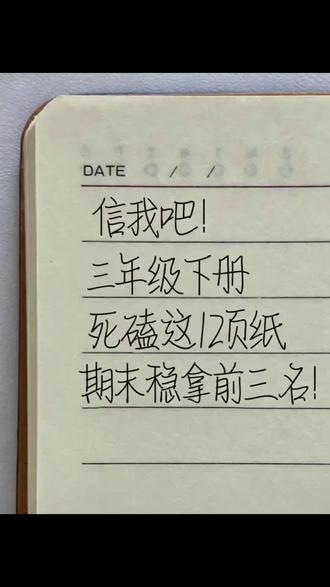 DATE / /
信我吧!
三年级下册
死磕这12页纸
期末稳拿前三名!